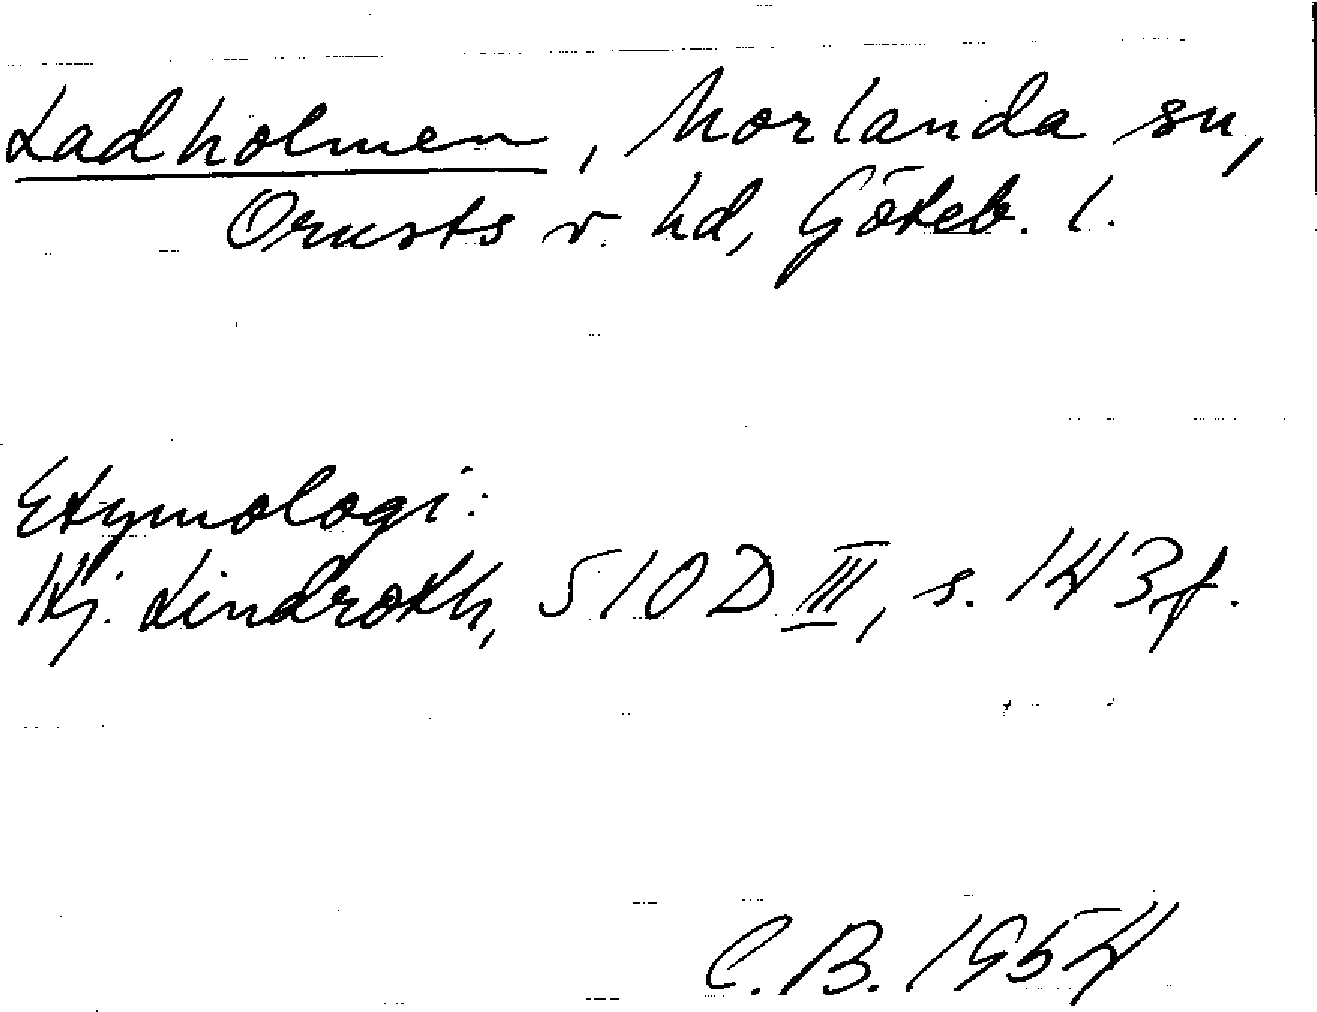 Ladholmen, Morlanda sn,
Orusts v. hd, Göteb. l.
Etymologi:
Hj. Lindroth, SIOD III, s. 143 f.
C.B. 1954